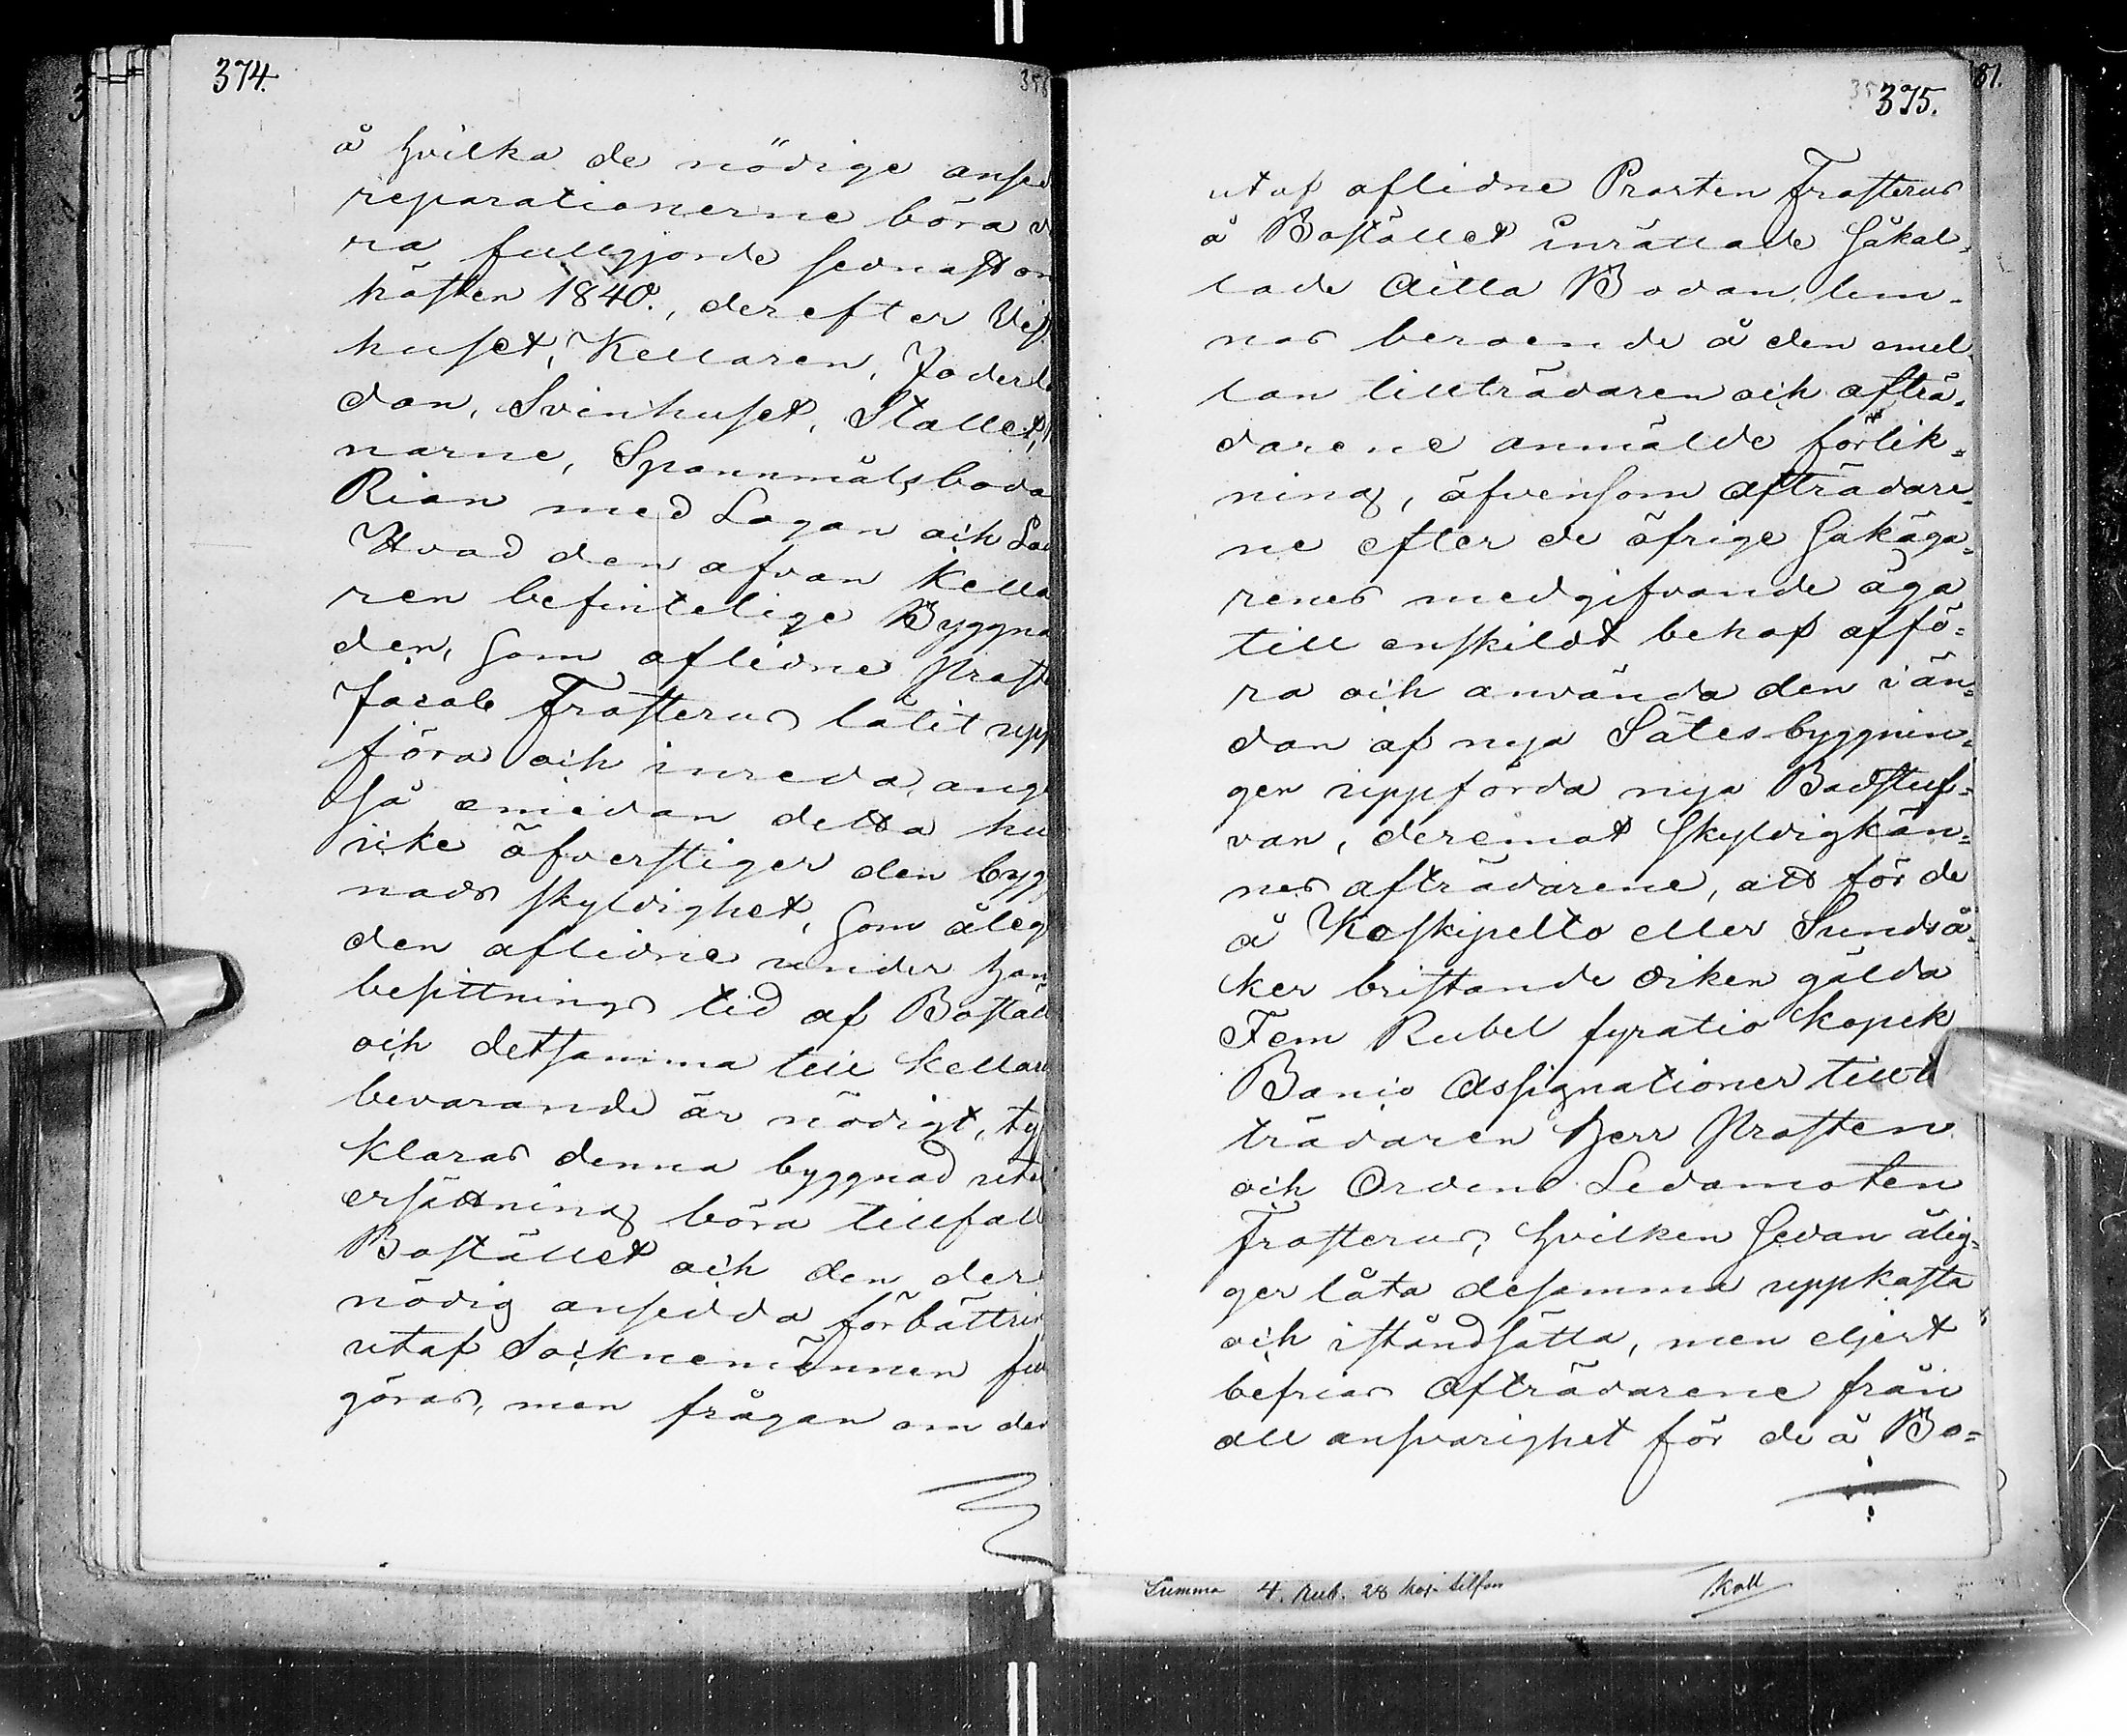 374.
å hvilka de nödige ansed
reparationerne böra v
ra fullgjorde sednast om
hösten 1840., derefter Vis
huset, Kellaren, Foderla
dan, Svinhuset, Stallet,
narne, Spannmålsboda
Rian med Logan och Lad
Hvad den ofvan Kella
ren befintelige Byggna
den, som aflidne Prost
Jacob Frosterus låtit upp
föra och inreda, ang
så emedan detta hu
icke öfverstiger den byg
nads skyldighet, som åleg
den aflidne under han
besittnings tid af Bostäl
och detsamma till Kellare
bevarande är nödigt, ty
klaras denna byggnad uta
ersättning böra tillfall
Bostället och den der
nödig ansedda förbättrin
utaf Socknemännen ful
göras, men frågan om den
375.
utaf aflidne Prosten Frosterus
å Bostället inrättade såkal=
lade Aitta Bodan, lem=
nas beroende å den emel=
lan tillträdaren och afträ=
darene anmälde förlik=
ning, äfvensom Afträdare=
ne efter de öfrige sakäga=
renes medgifvande äga
till enskildt behof afför=
ra och använda den i än=
dan af nya Sätesbyggnin=
gen uppförda nya Badstuf=
van, deremot skyldigkän=
nes afträdarene, att för de
å Koskipelto eller Sundså=
ker bristande diken gälda
Fem Rubel fyratio kopek
Banco Assignationer till t
trädaren Herr Prosten
och Ordens Ledamoten
Frosterus, hvilken sedan ålig=
ger låta desamma uppkasta
och iståndsätta, men eljest
befrias Afträdarene från
all ansvarighet för de å Bo=
Summa 4. Rub. 28 kop. silfver